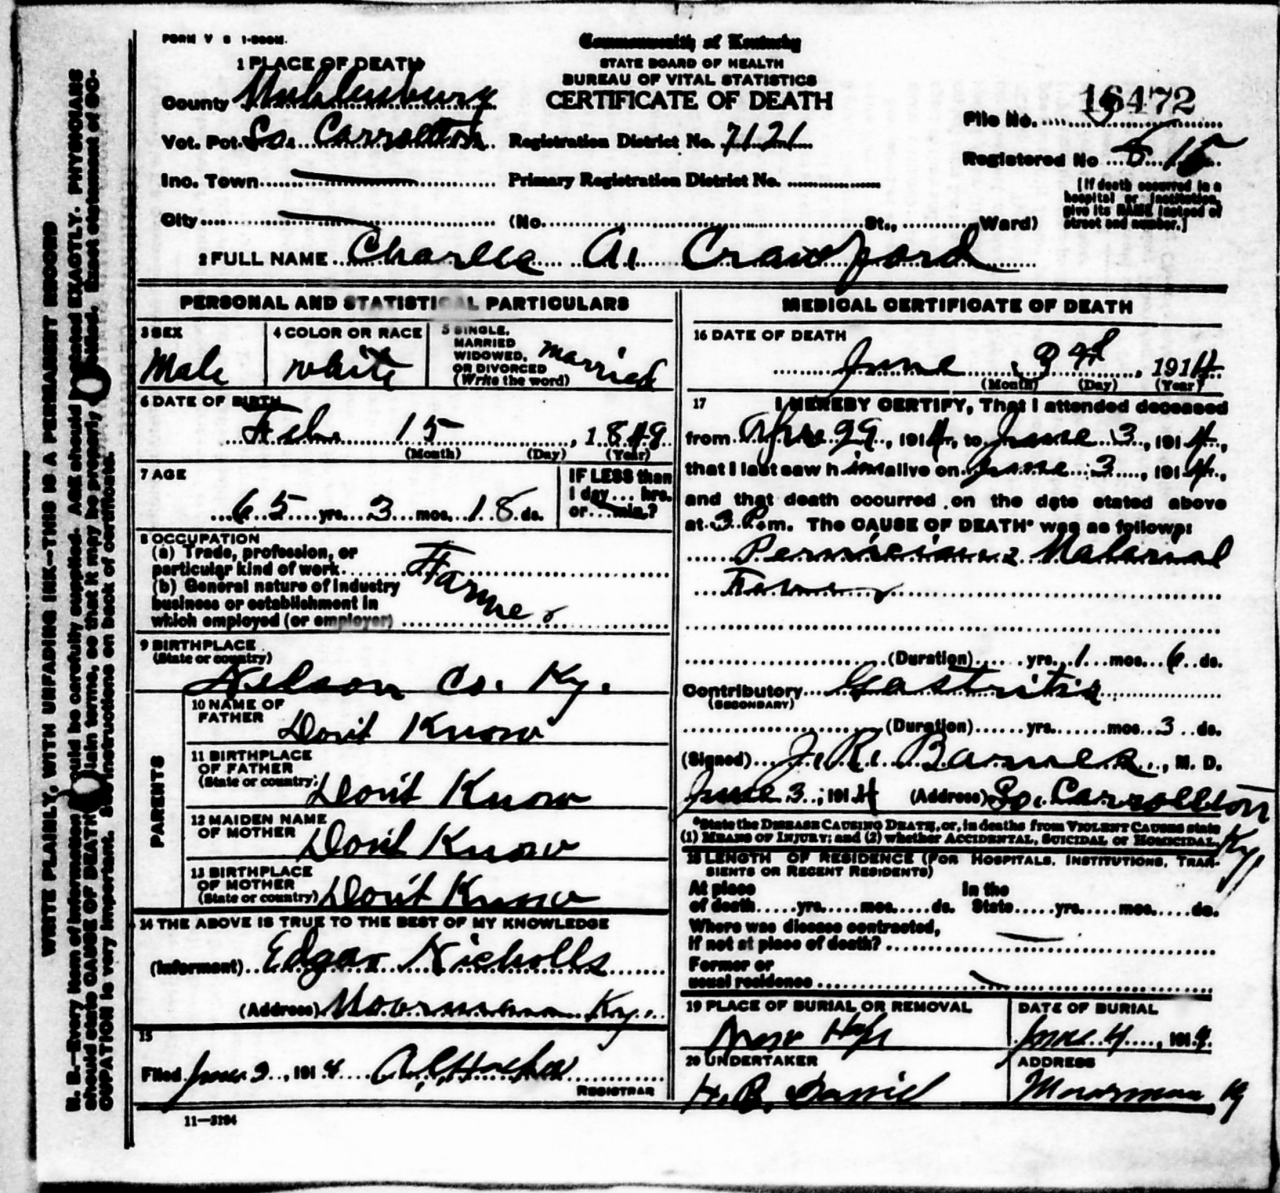 FORM V S 1-200M.
Commonwealth of Kentucky
STATE BOARD OF HEALTH
BUREAU OF VITAL STATISTICS
CERTIFICATE OF DEATH
1 PLACE OF DEATH
County Muhlenburg
Vot. Pct. So. Carrollton Registration District No. 7121
Inc. Town Primary Registration District No.
City (No. St., Ward)
File No. 16472
Registered No 615
[If death occurred in a
hospital or institution,
give its NAME instead of
street and number.]
2 FULL NAME Charlie A. Crawford
PERSONAL AND STATISTICAL PARTICULARS
3 SEX
Male
4 COLOR OR RACE
white
5 SINGLE,
MARRIED
WIDOWED,
OR DIVORCED
(Write the word)
married
6 DATE OF BIRTH
Feb. 15, 1849
(Month) (Day) (Year)
7 AGE
65 yrs. 3 mos. 18 ds.
IF LESS than
1 day... hrs.
or...min.?
8 OCCUPATION
(a) Trade, profession, or
particular kind of work Farmer
(b) General nature of industry
business or establishment in
which employed (or employer)
9 BIRTHPLACE
(State or country)
Nelson Co. Ky.
PARENTS
10 NAME OF
FATHER Don't Know
11 BIRTHPLACE
OF FATHER
(State or country) Don't Know
12 MAIDEN NAME
OF MOTHER Don't Know
13 BIRTHPLACE
OF MOTHER
(State or country) Don't Know
14 THE ABOVE IS TRUE TO THE BEST OF MY KNOWLEDGE
(Informant) Edgar Nicholls
(Address) Moorman Ky.
15
Filed June 9, 1914
REGISTRAR
11-3194
MEDICAL CERTIFICATE OF DEATH
16 DATE OF DEATH
June 3rd, 1914
(Month) (Day) (Year)
17 I HEREBY CERTIFY, That I attended deceased
from Apr 29, 1914, to June 3, 1914,
that I last saw him alive on June 3, 1914,
and that death occurred on the date stated above
at 3 P.m. The CAUSE OF DEATH* was as follows:
Pernicious Malarial
Fever
(Duration) yrs. 1 mos. 6 ds.
Contributory Gastritis
(SECONDARY)
(Duration) yrs. mos. 3 ds.
(Signed) J. R. Barnes, M. D.
June 3, 1914 (Address) So. Carrollton Ky.
*State the DISEASE CAUSING DEATH, or, in deaths from VIOLENT CAUSES state
(1) MEANS OF INJURY; and (2) whether ACCIDENTAL, SUICIDAL or HOMICIDAL.
18 LENGTH OF RESIDENCE (FOR HOSPITALS, INSTITUTIONS, TRAN-
SIENTS OR RECENT RESIDENTS)
At place In the
of death yrs. mos. ds. State yrs. mos. ds.
Where was disease contracted,
if not at place of death?
Former or
usual residence
19 PLACE OF BURIAL OR REMOVAL
New Hope
DATE OF BURIAL
June 4, 1914
20 UNDERTAKER
H. B. Daniel
ADDRESS
Moorman Ky
WRITE PLAINLY, WITH UNFADING INK—THIS IS A PERMANENT RECORD
N. B.—Every item of information should be carefully supplied. AGE should be stated EXACTLY. PHYSICIANS
should state CAUSE OF DEATH in plain terms, so that it may be properly classified. Exact statement of OC-
CUPATION is very important. See instructions on back of certificate.